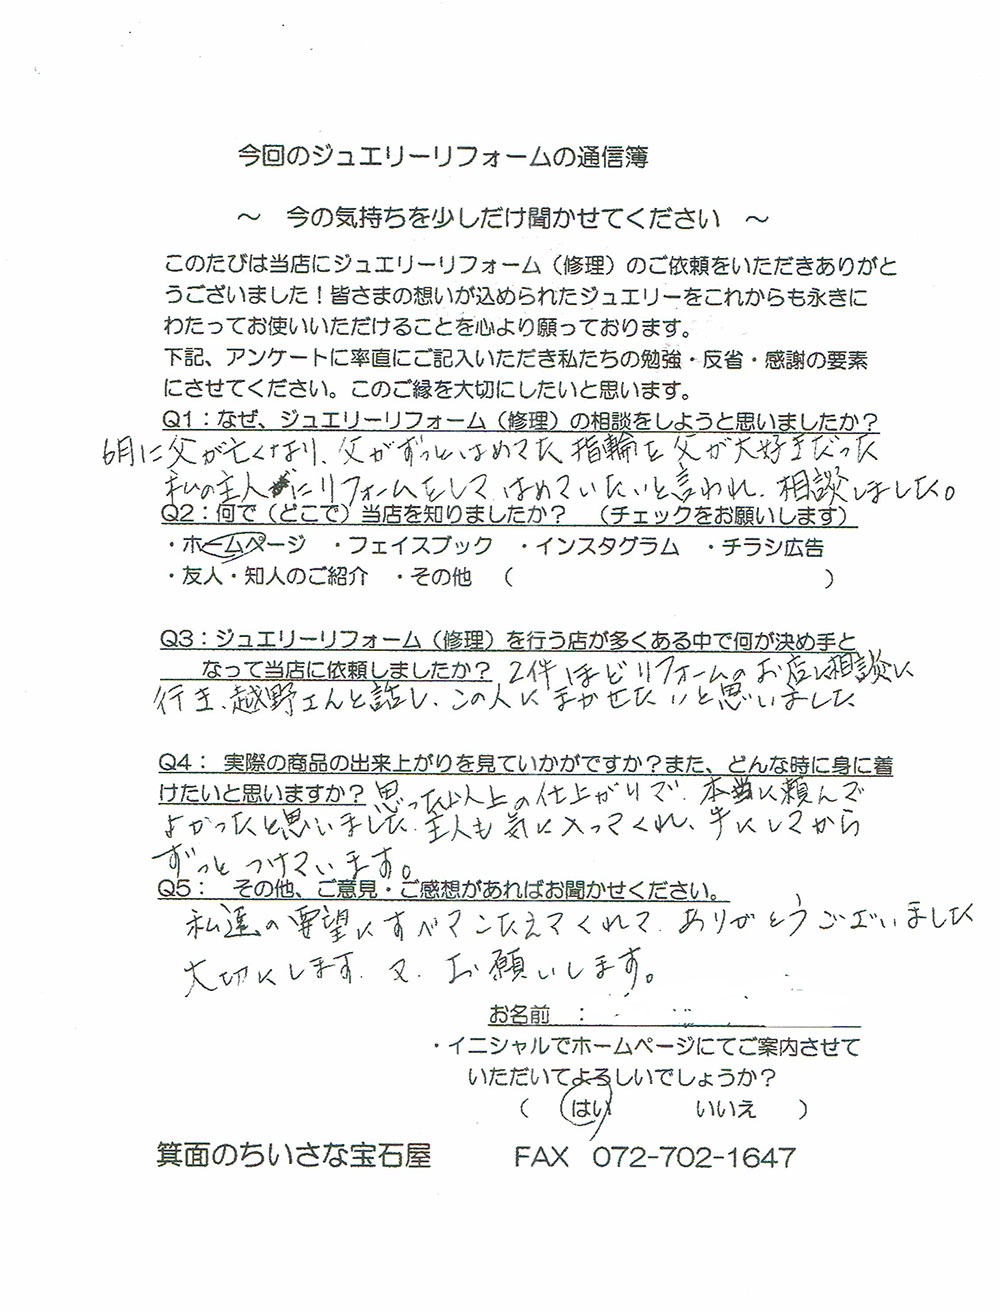 今回のジュエリーリフォームの通信簿
～ 今の気持ちを少しだけ聞かせてください ～
このたびは当店にジュエリーリフォーム（修理）のご依頼をいただきありがと
うございました！皆さまの想いが込められたジュエリーをこれからも永きに
わたってお使いいただけることを心より願っております。
下記、アンケートに率直にご記入いただき私たちの勉強・反省・感謝の要素
にさせてください。このご縁を大切にしたいと思います。
Q1：なぜ、ジュエリーリフォーム（修理）の相談をしようと思いましたか？
6月に父が亡くなり、父がずっとはめてた指輪を父が大好きだった
私の主人にリフォームをして、はめていたいと言われ、相談しました。
Q2：何で（どこで）当店を知りましたか？ （チェックをお願いします）
・ホームページ ・フェイスブック ・インスタグラム ・チラシ広告
・友人・知人のご紹介 ・その他 （ ）
Q3：ジュエリーリフォーム（修理）を行う店が多くある中で何が決め手と
なって当店に依頼しましたか？ 2件ほどリフォームのお店に相談に
行き、越野さんと話し、この人にまかせたいと思いました
Q4： 実際の商品の出来上がりを見ていかがですか？また、どんな時に身に着
けたいと思いますか？ 思った以上の仕上がりで、本当に頼んで
よかったと思いました。主人も気に入ってくれ、手にしてから
ずっとつけています。
Q5： その他、ご意見・ご感想があればお聞かせください。
私達の要望にすべてこたえてくれて、ありがとうございました
大切にします。又、お願いします。
お名前 ：
・イニシャルでホームページにてご案内させて
いただいてよろしいでしょうか？
（ はい いいえ ）
箕面のちいさな宝石屋 FAX 072-702-1647